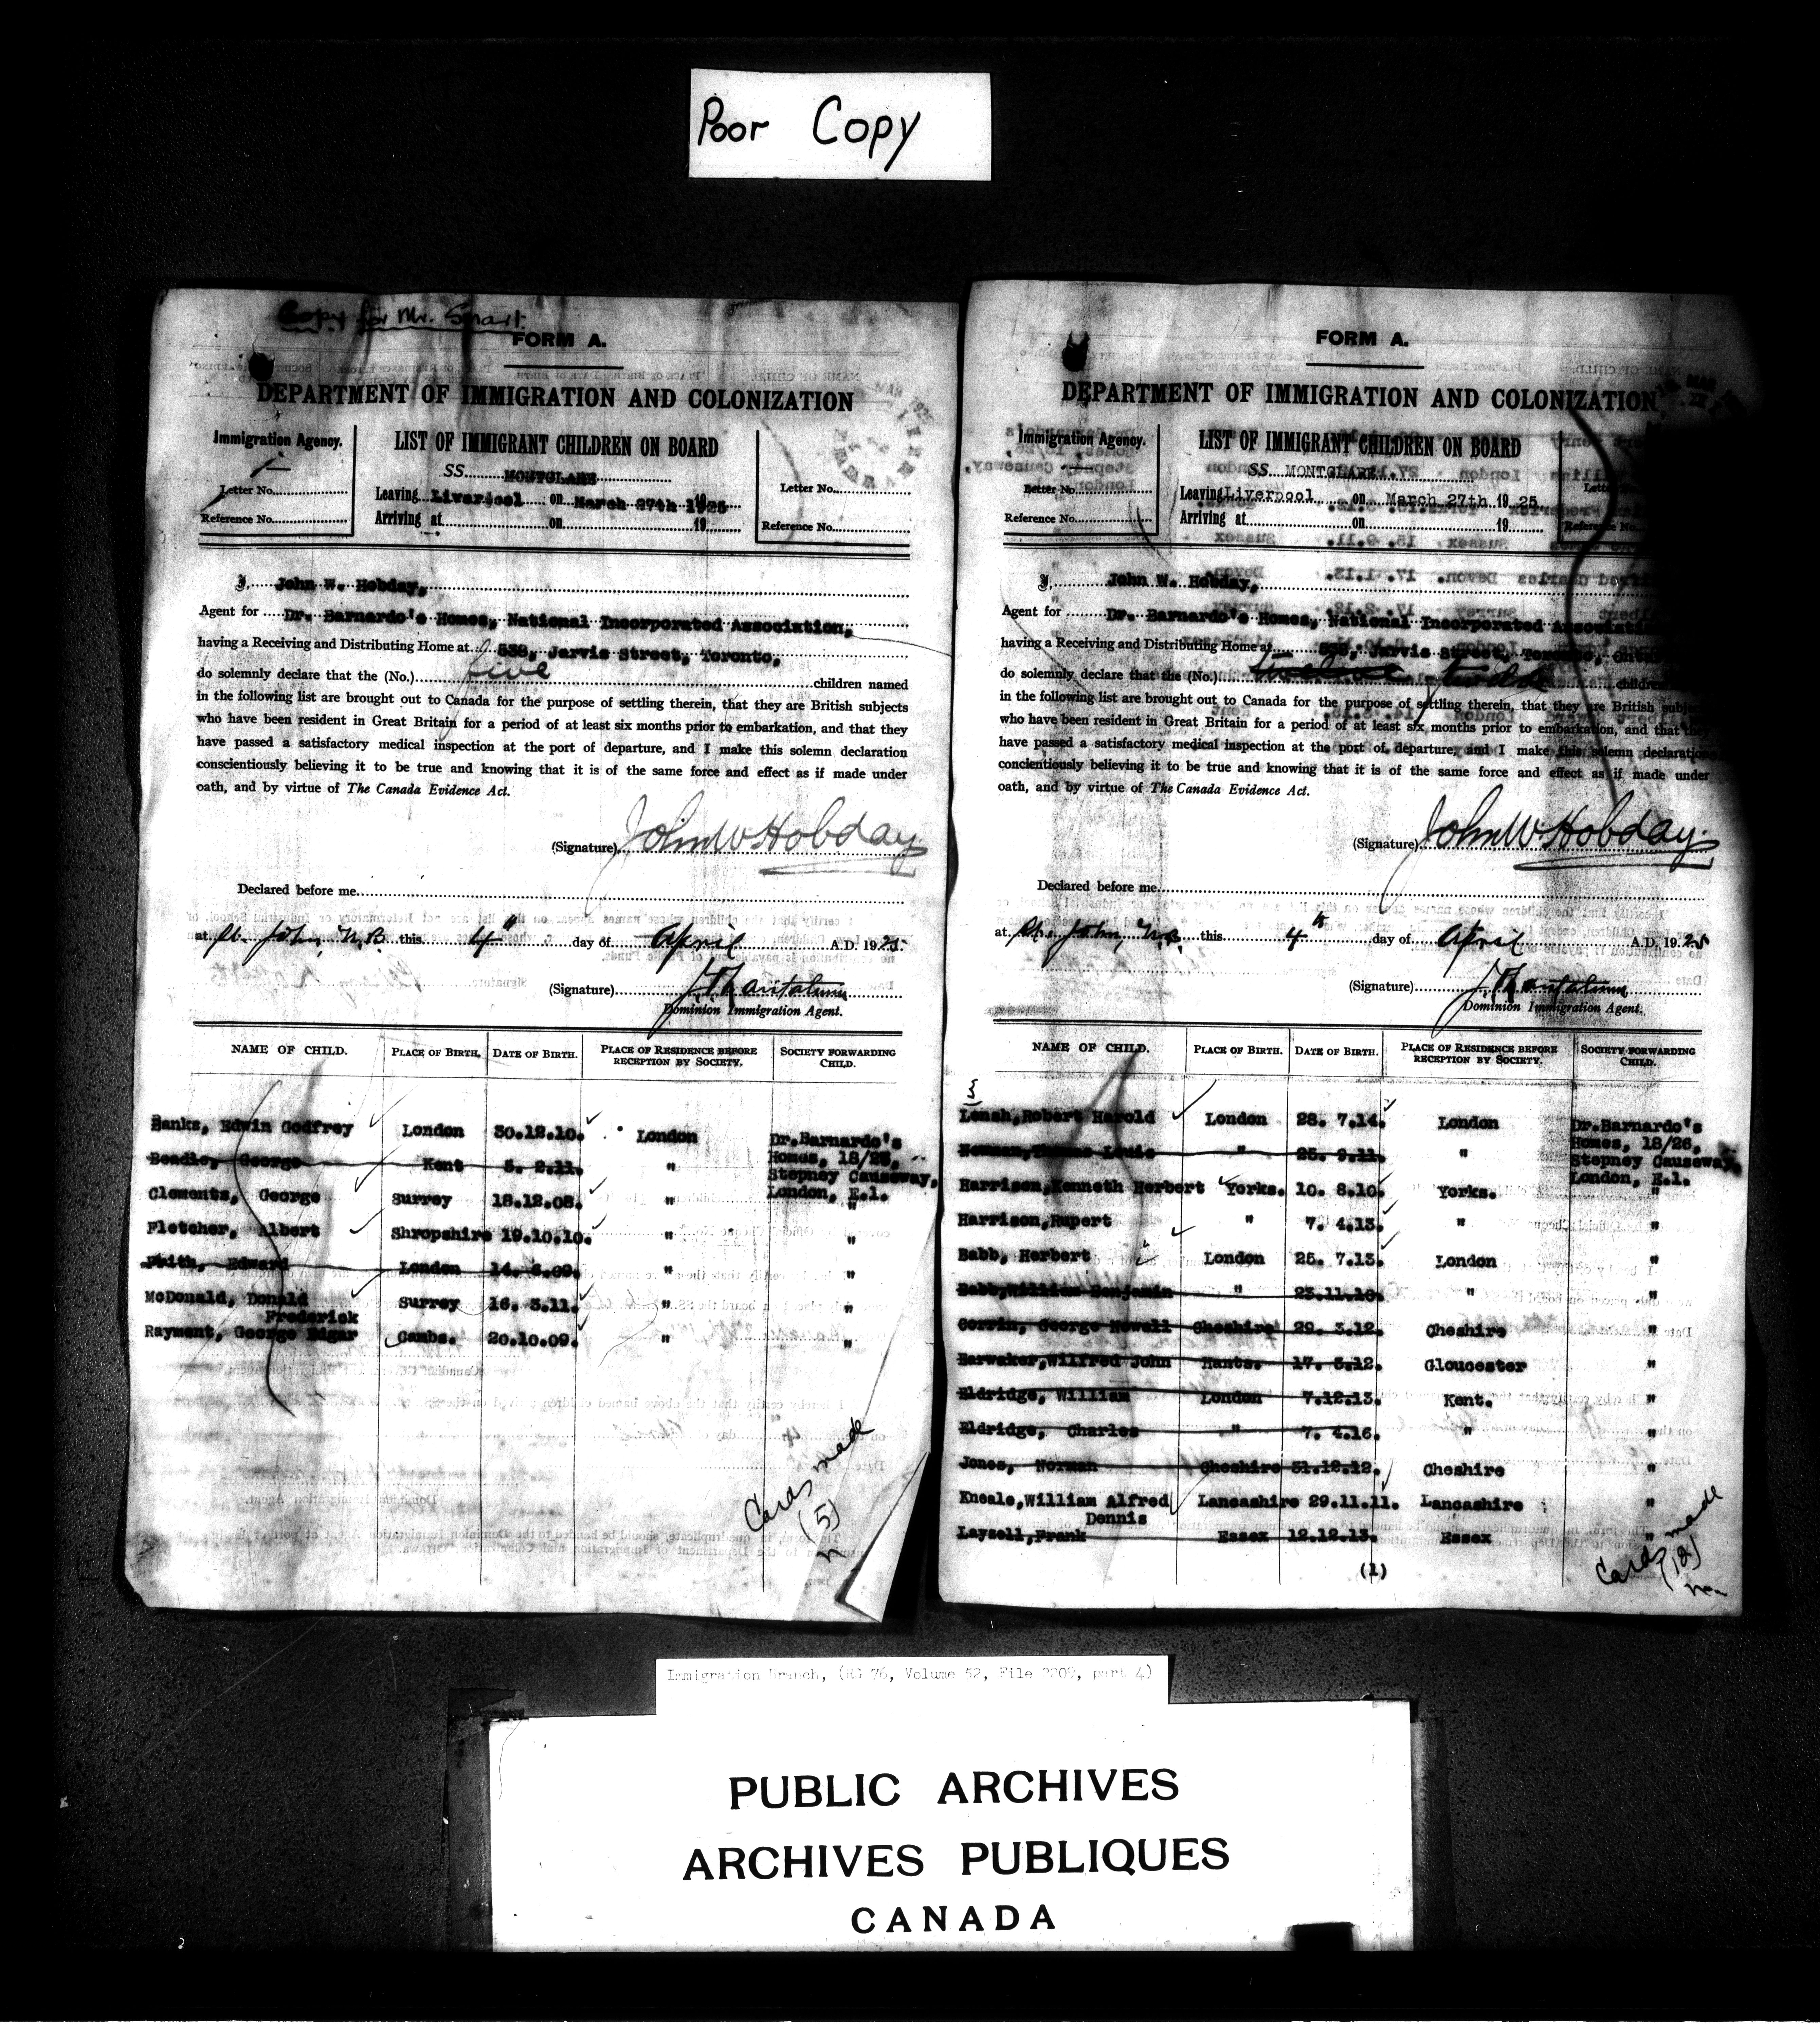 Poor Copy
Copy for Mr. Smart.
FORM A.
DEPARTMENT OF IMMIGRATION AND COLONIZATION
Immigration Agency.
Letter No.
Reference No.
LIST OF IMMIGRANT CHILDREN ON BOARD
SS. MONTCLARE
Leaving Liverpool on March 27th 1925
Arriving at on 19
Letter No.
Reference No.
I, John W. Hobday,
Agent for Dr. Barnardo's Homes, National Incorporated Association,
having a Receiving and Distributing Home at 538, Jarvis Street, Toronto,
do solemnly declare that the (No.) five children named
in the following list are brought out to Canada for the purpose of settling therein, that they are British subjects
who have been resident in Great Britain for a period of at least six months prior to embarkation, and that they
have passed a satisfactory medical inspection at the port of departure, and I make this solemn declaration
conscientiously believing it to be true and knowing that it is of the same force and effect as if made under
oath, and by virtue of The Canada Evidence Act.
(Signature) John W Hobday
Declared before me
at St. John, N.B. this 4th day of April A.D. 1925
(Signature)
Dominion Immigration Agent.
NAME OF CHILD. PLACE OF BIRTH. DATE OF BIRTH. PLACE OF RESIDENCE BEFORE RECEPTION BY SOCIETY. SOCIETY FORWARDING CHILD.
Banks, Edwin Godfrey London 30.12.10. London Dr.Barnardo's
Homes, 18/26,
Beadle, George Kent 5. 2.11. "
Stepney Causeway,
London, E.1.
Clements, George Surrey 18.12.08. " "
Fletcher, Albert Shropshire 19.10.10. " "
Frith, Edward London 14. 6.09. " "
McDonald, Donald Surrey 16. 3.11. " "
Frederick
Rayment, George Edgar Cambs. 20.10.09. " "
Cards made
(5)
FORM A.
DEPARTMENT OF IMMIGRATION AND COLONIZATION
Immigration Agency.
Letter No.
Reference No.
LIST OF IMMIGRANT CHILDREN ON BOARD
SS. MONTCLARE.
Leaving Liverpool on March 27th 1925
Arriving at on 19
Reference No.
I, John W. Hobday,
Agent for Dr. Barnardo's Homes, National Incorporated Association
having a Receiving and Distributing Home at 538, Jarvis Street, Toronto,
do solemnly declare that the (No.) twelve children
in the following list are brought out to Canada for the purpose of settling therein, that they are British subjects
who have been resident in Great Britain for a period of at least six months prior to embarkation, and that they
have passed a satisfactory medical inspection at the port of departure, and I make this solemn declaration
concientiously believing it to be true and knowing that it is of the same force and effect as if made under
oath, and by virtue of The Canada Evidence Act.
(Signature) John W Hobday
Declared before me
at St. John, N.B. this 4th day of April A.D. 1925
(Signature)
Dominion Immigration Agent.
NAME OF CHILD. PLACE OF BIRTH. DATE OF BIRTH. PLACE OF RESIDENCE BEFORE RECEPTION BY SOCIETY. SOCIETY FORWARDING CHILD.
Robert Harold London 28. 7.14. London Dr.Barnardo's
Homes, 18/26,
Newman, Thomas Louis " 25. 9.11. "
Stepney Causeway,
London, E.1.
Harrison, Kenneth Herbert Yorks. 10. 8.10. Yorks. "
Harrison, Rupert " 7. 4.13. " "
Babb, Herbert London 25. 7.13. London "
Babb, William Benjamin " 23.11.10. " "
Corrin, George Newell Cheshire 29. 3.12. Cheshire "
Earwaker, Wilfred John Hants. 17. 5.12. Gloucester "
Eldridge, William London 7.12.13. Kent. "
Eldridge, Charles " 7. 4.16. " "
Jones, Norman Cheshire 31.12.12. Cheshire "
Kneale, William Alfred Lancashire 29.11.11. Lancashire "
Dennis
Laysell, Frank Essex 12.12.13. Essex "
(1)
Cards made
(12)
Immigration Branch, (RG 76, Volume 52, File 2209, part 4)
PUBLIC ARCHIVES
ARCHIVES PUBLIQUES
CANADA